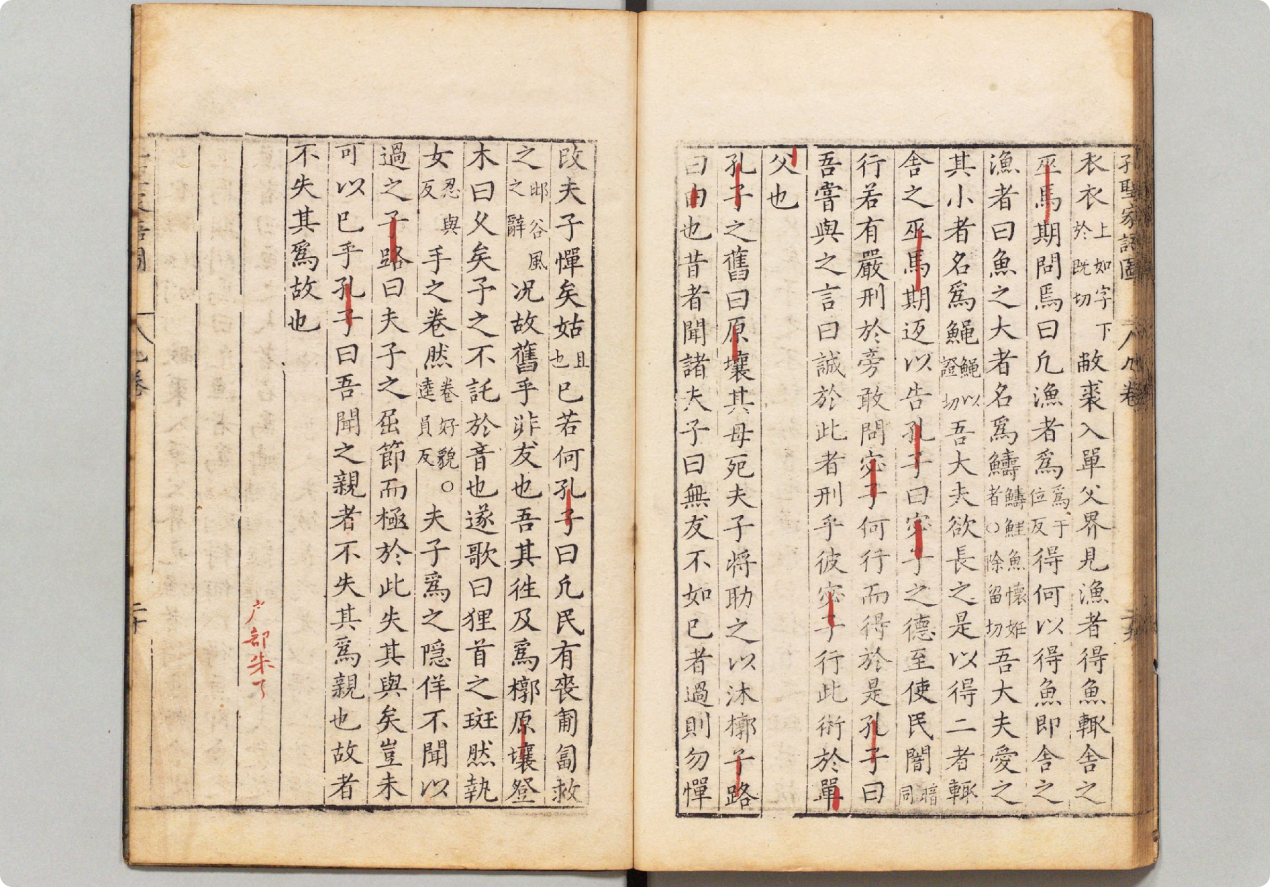 孔聖家語圖 八九卷
衣衣上如字下於旣切敝裘入單父界見漁者得魚輙舍之
巫馬期問焉曰凢漁者爲爲于位反得何以得魚即舍之
漁者曰魚之大者名爲鱣鱣鮏魚懷姙者○除留切吾大夫愛之
其小者名爲鱦鱦以證切吾大夫欲長之是以得二者輙
舍之巫馬期迈以告孔子曰宓子之德至使民闇暗同
行若有嚴刑於旁敢問宓子何行而得於是孔子曰
吾甞與之言曰誠於此者刑乎彼宓子行此術於單
父也
孔子之舊曰原壤其母死夫子將助之以沐槨子路
曰由也昔者聞諸夫子曰無友不如已者過則勿憚
攺夫子憚矣姑且也已若何孔子曰凢民有喪匍匐救
之邶谷風之辭况故舊乎非友也吾其徃及爲槨原壤登
木曰乆矣子之不託於音也遂歌曰狸首之斑然執
女忍與反手之卷然卷好貌○逵員反夫子爲之隠佯不聞以
過之子路曰夫子之屈節而極於此失其與矣豈未
可以已乎孔子曰吾聞之親者不失其爲親也故者
不失其爲故也
部朱了